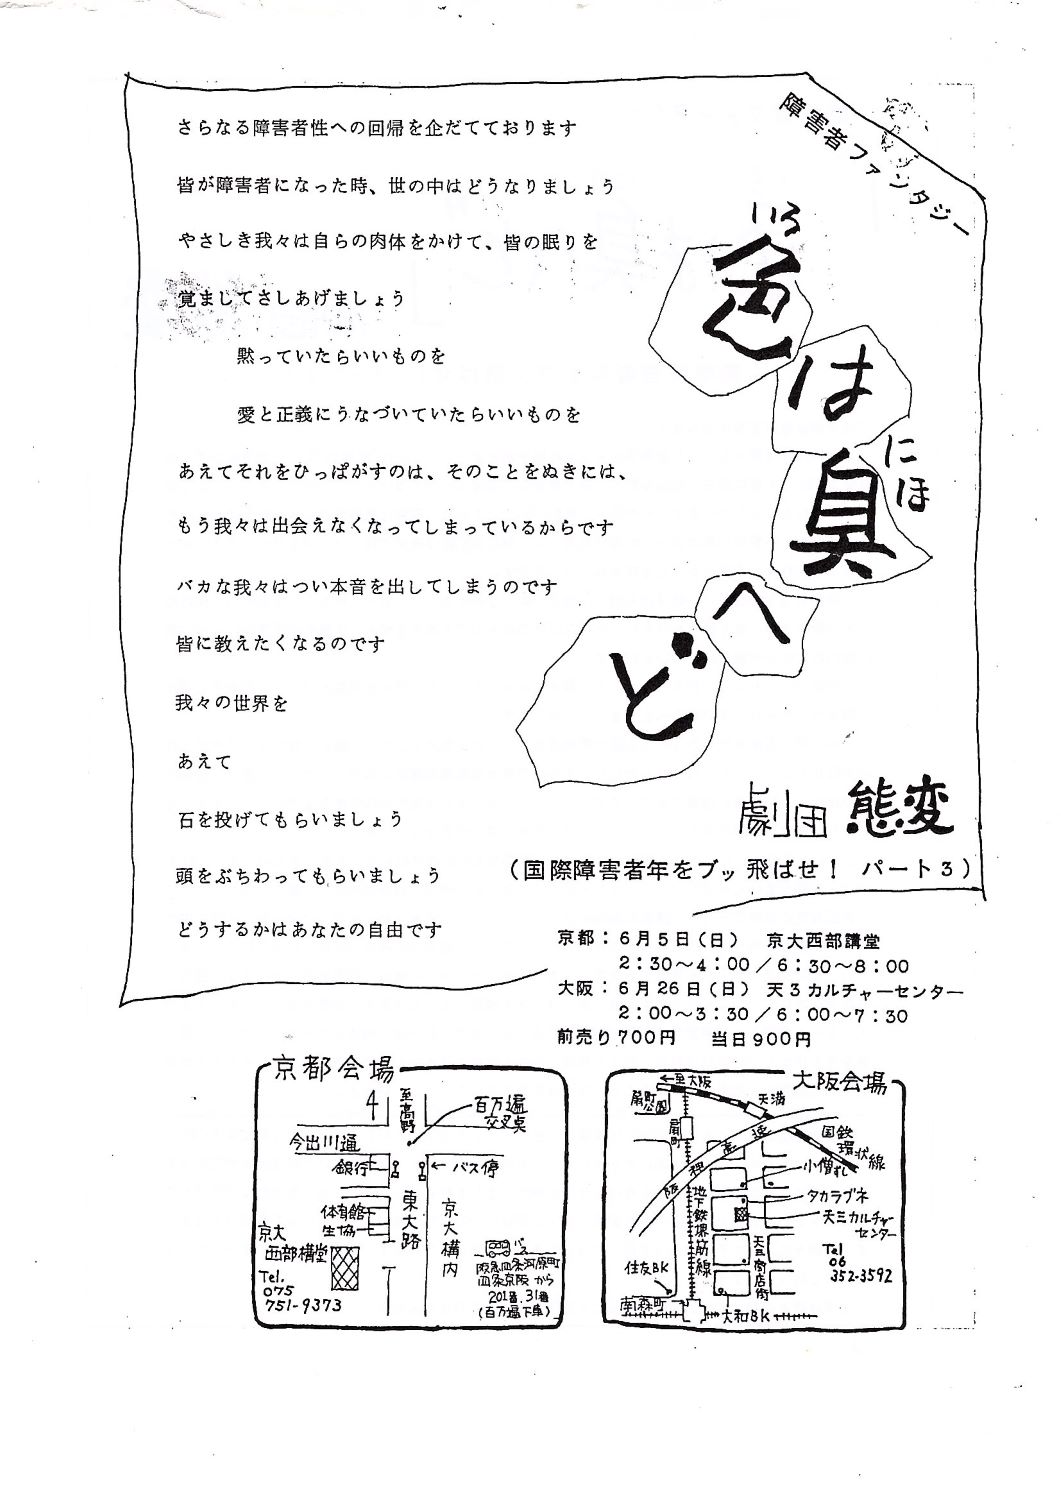 障害者ファンタジー
いろ
色は臭へど
にほ
劇団 態変
(国際障害者年をブッ飛ばせ! パート3)
さらなる障害者性への回帰を企だてております
皆が障害者になった時、世の中はどうなりましょう
やさしき我々は自らの肉体をかけて、皆の眠りを
覚ましてさしあげましょう
黙っていたらいいものを
愛と正義にうなづいていたらいいものを
あえてそれをひっぱがすのは、そのことをぬきには、
もう我々は出会えなくなってしまっているからです
バカな我々はつい本音を出してしまうのです
皆に教えたくなるのです
我々の世界を
あえて
石を投げてもらいましょう
頭をぶちわってもらいましょう
どうするかはあなたの自由です
京都:6月5日(日) 京大西部講堂
2:30〜4:00/6:30〜8:00
大阪:6月26日(日) 天3カルチャーセンター
2:00〜3:30/6:00〜7:30
前売り700円 当日900円
京都会場
至高野
百万遍
交叉点
今出川通
銀行
←バス停
体育館
生協
東大路
京大構内
京大
西部構堂
Tel.
075
751-9373
バス
阪急四条河原町
四条京阪から
201番.31番
(百万遍下車)
大阪会場
←至大阪
扇町
公園
天満
扇町
国鉄
環状線
阪神高速
小僧すし
タカラブネ
天三カルチャー
センター
地下鉄堺筋線
天三商店街
Tel
06
352-3592
住友BK
南森町
大和BK